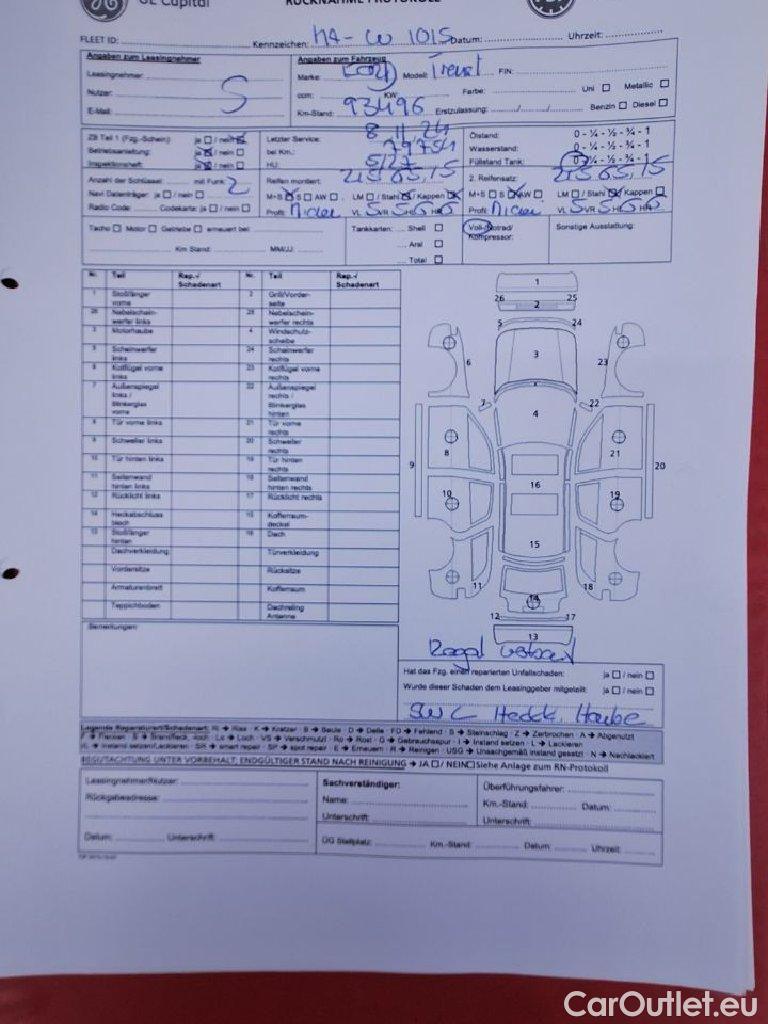 GE Capital RÜCKNAHME PROTOKOLL
FLEET ID: Kennzeichen: MA-W 1015 Datum: Uhrzeit:
Angaben zum Leasingnehmer Angaben zum Fahrzeug
Leasingnehmer: Marke: Modell: FIN:
Nutzer: S ccm: KW: Farbe: Uni Metallic
E-Mail: Km-Stand: 93496 Erstzulassung: Benzin Diesel
ZB Teil 1 (Fzg.-Schein) ja / nein Letzter Service: 8.11.24 Ölstand: 0 - ¼ - ½ - ¾ - 1
Betriebsanleitung: ja / nein bei Km.: 79754 Wasserstand: 0 - ¼ - ½ - ¾ - 1
Inspektionsheft: ja / nein HU: 5/27 Füllstand Tank: 0 - ¼ - ½ - ¾ - 1
Anzahl der Schlüssel: mit Funk: 2 Reifen montiert: 215.65.15 2. Reifensatz: 215.65.15
Navi Datenträger: ja / nein M+S S AW LM / Stahl / Kappen M+S S AW LM / Stahl / Kappen
Radio Code Codekarte: ja / nein Profil: VL 5 VR 5 HL 5 HR 5 Profil: VL 5 VR 5 HL 6 HR 5
Tacho Motor Getriebe erneuert bei: Tankkarten: Shell Voll-/Notrad/ Sonstige Ausstattung:
Kompressor:
Aral
Km Stand: MM/JJ: Total
Nr. Teil Rep.-/ Schadenart Nr. Teil Rep.-/ Schadenart
1 Stoßfänger vorne 2 Grill/Vorderseite
26 Nebelscheinwerfer links 25 Nebelscheinwerfer rechts
3 Motorhaube 4 Windschutzscheibe
5 Scheinwerfer links 24 Scheinwerfer rechts
6 Kotflügel vorne links 23 Kotflügel vorne rechts
7 Außenspiegel links / Blinkerglas vorne 22 Außenspiegel rechts / Blinkerglas hinten
8 Tür vorne links 21 Tür vorne rechts
9 Schweller links 20 Schweller rechts
10 Tür hinten links 19 Tür hinten rechts
11 Seitenwand hinten links 18 Seitenwand hinten rechts
12 Rücklicht links 17 Rücklicht rechts
14 Heckabschlussblech 15 Kofferraumdeckel
13 Stoßfänger hinten 16 Dach
Dachverkleidung Türverkleidung
Vordersitze Rücksitze
Armaturenbrett Kofferraum
Teppichboden Dachreling
Antenne
1
26 25
2
5 24
3
6 23
7 22
4
8 21
9 20
16
10 19
15
11 18
14
12 17
13
Bemerkungen:
Hat das Fzg. einen reparierten Unfallschaden: ja / nein
Wurde dieser Schaden dem Leasinggeber mitgeteilt: ja / nein
Legende Reparaturart/Schadenart: Ri → Riss - K → Kratzer - B → Beule - D → Delle - FD → Fehlend - S → Steinschlag - Z → Zerbrochen - A → Abgenutzt
BEGUTACHTUNG UNTER VORBEHALT: ENDGÜLTIGER STAND NACH REINIGUNG → JA / NEIN Siehe Anlage zum RN-Protokoll
Leasingnehmer/Nutzer: Sachverständiger: Überführungsfahrer:
Rückgabeadresse: Name: Km.-Stand: Datum:
Unterschrift: Unterschrift:
Datum: Unterschrift: ÜG Stellplatz: Km.-Stand: Datum: Uhrzeit:
CarOutlet.eu